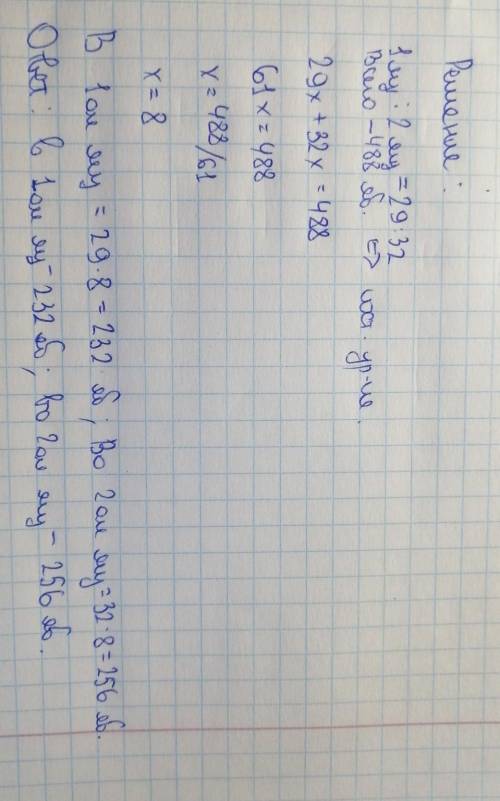 Решение:
1 ящ : 2 ящ = 29:32
Всего - 488 яб. => сост. ур-ие.
29x + 32x = 488
61x = 488
x = 488/61
x = 8
В 1ом ящ = 29·8 = 232 яб; Во 2ом ящ = 32·8 = 256 яб.
Ответ: в 1ом ящ - 232 яб; во 2ом ящ - 256 яб.